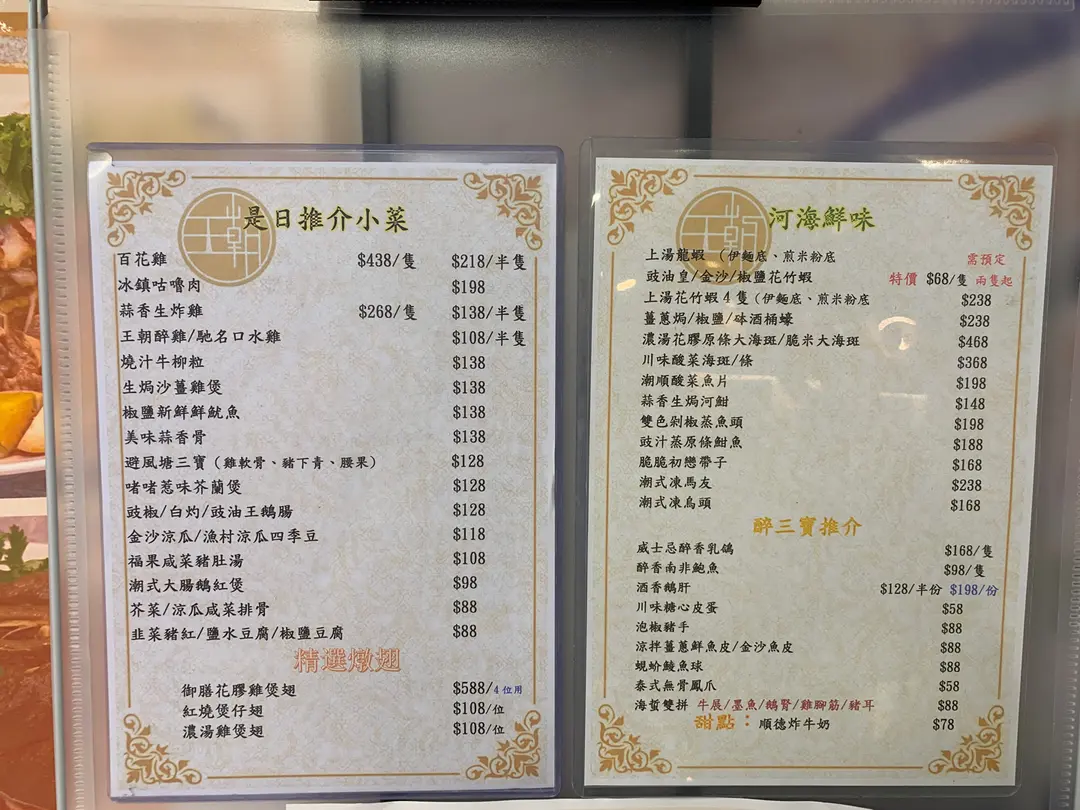 王朝
是日推介小菜
百花雞 $438/隻 $218/半隻
冰鎮咕嚕肉 $198
蒜香生炸雞 $268/隻 $138/半隻
王朝醉雞/馳名口水雞 $108/半隻
燒汁牛柳粒 $138
生焗沙薑雞煲 $138
椒鹽新鮮鮮魷魚 $138
美味蒜香骨 $138
避風塘三寶（雞軟骨、豬下青、腰果） $128
啫啫惹味芥蘭煲 $128
豉椒/白灼/豉油王鵝腸 $128
金沙涼瓜/漁村涼瓜四季豆 $118
福果咸菜豬肚湯 $108
潮式大腸鵝紅煲 $98
芥菜/涼瓜咸菜排骨 $88
韭菜豬紅/鹽水豆腐/椒鹽豆腐 $88
精選燉翅
御膳花膠雞煲翅 $588/4位用
紅燒煲仔翅 $108/位
濃湯雞煲翅 $108/位
王朝
河海鮮味
上湯龍蝦 （伊麵底、煎米粉底 需預定
豉油皇/金沙/椒鹽花竹蝦 特價 $68/隻 兩隻起
上湯花竹蝦4隻（伊麵底、煎米粉底 $238
薑蔥焗/椒鹽/砵酒桶蠔 $238
濃湯花膠原條大海斑/脆米大海斑 $468
川味酸菜海斑/條 $368
潮順酸菜魚片 $198
蒜香生焗河鮒 $148
雙色剁椒蒸魚頭 $198
豉汁蒸原條鮒魚 $188
脆脆初戀帶子 $168
潮式凍馬友 $238
潮式凍烏頭 $168
醉三寶推介
威士忌醉香乳鴿 $168/隻
醉香南非鮑魚 $98/隻
酒香鵝肝 $128/半份 $198/份
川味糖心皮蛋 $58
泡椒豬手 $88
涼拌薑蔥鮮魚皮/金沙魚皮 $88
蜆蚧鯪魚球 $88
泰式無骨鳳爪 $58
海蜇雙拼 牛展/墨魚/鵝腎/雞腳筋/豬耳 $88
甜點：順德炸牛奶 $78